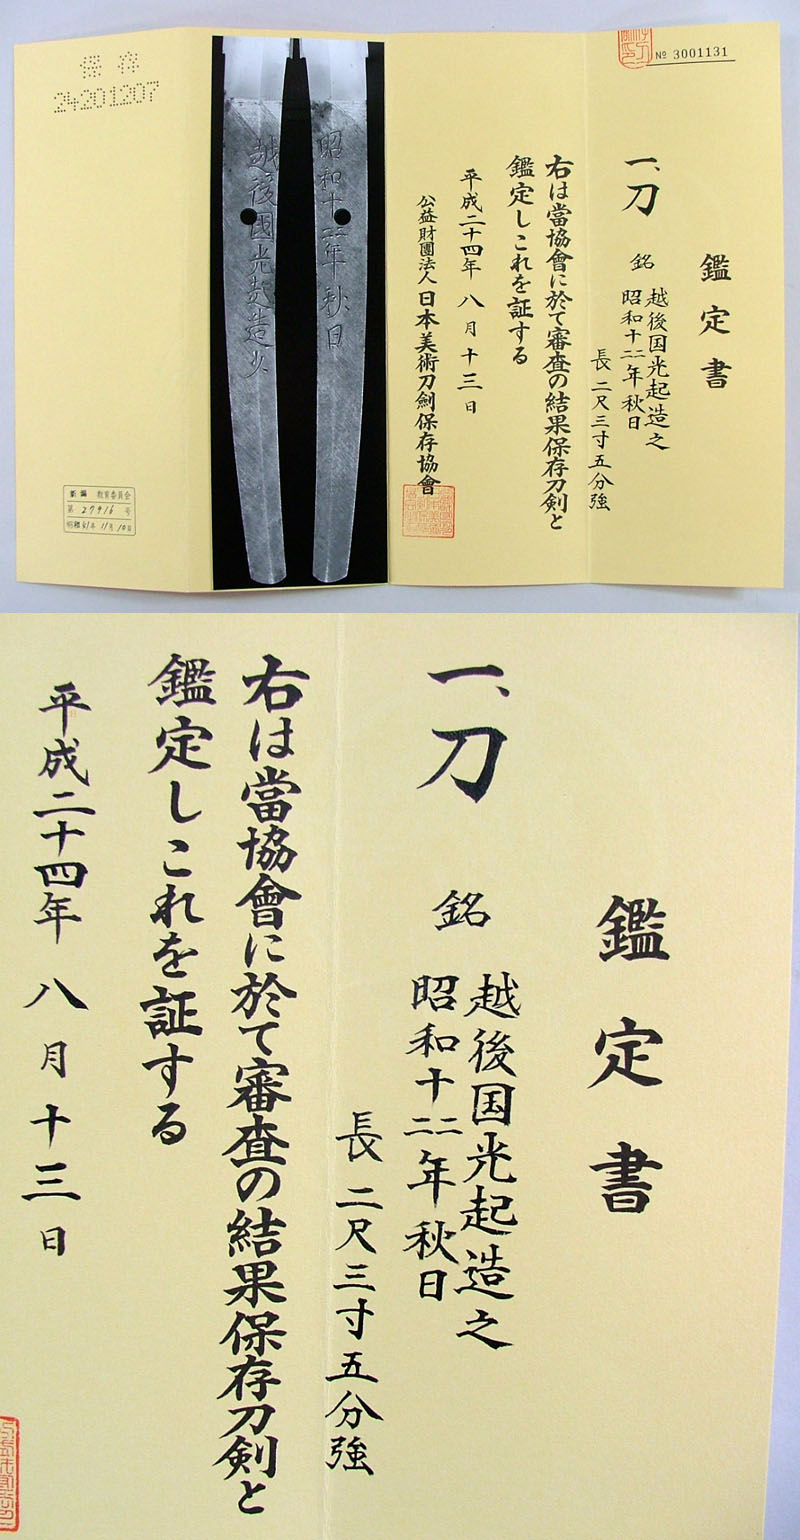 № 3001131
鑑定書
一、刀
銘
越後国光起造之
昭和十二二年秋日
長二尺三寸五分強
右は當協會に於て審査の結果保存刀剣と
鑑定しこれを証する
平成二十四年八月十三日
公益財團法人日本美術刀劍保存協會
昭和十二二年秋日
越後國光起造之
保存
24201207
新潟 教育委員会
第 27916 号
昭和61年11月10日
鑑定書
一、刀
銘
越後国光起造之
昭和十二二年秋日
長二尺三寸五分強
右は當協會に於て審査の結果保存刀剣と
鑑定しこれを証する
平成二十四年八月十三日